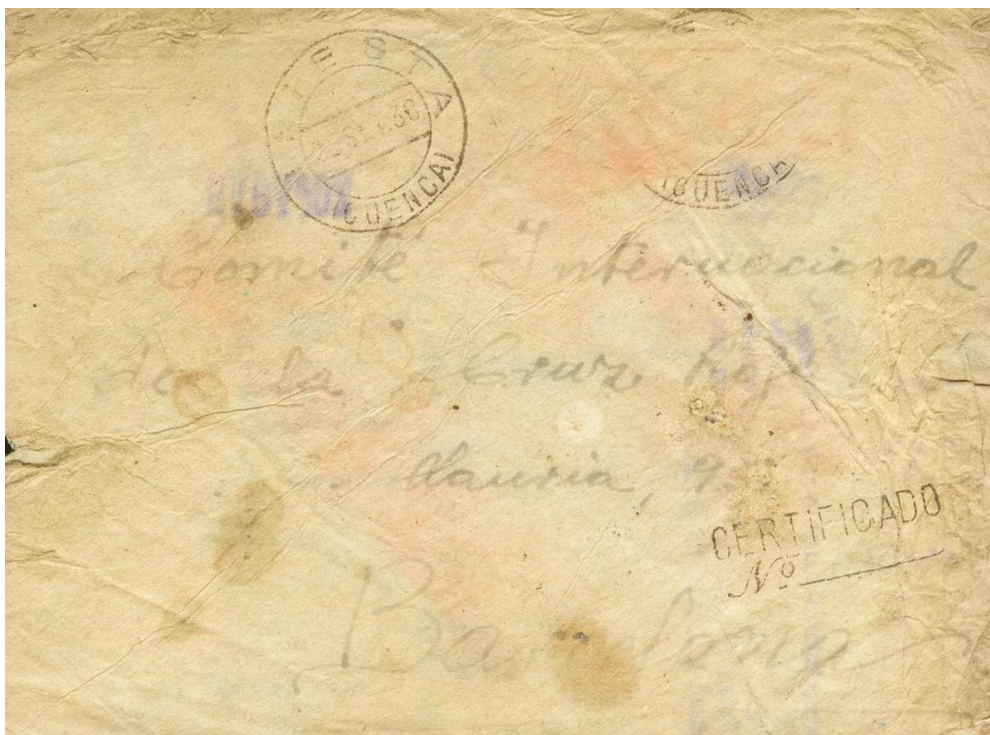 INIESTA
(CUENCA)
(CUENCA
Comité Internacional
de la Cruz Roja
Lauria, 95
CERTIFICADO
Nº
Barcelona